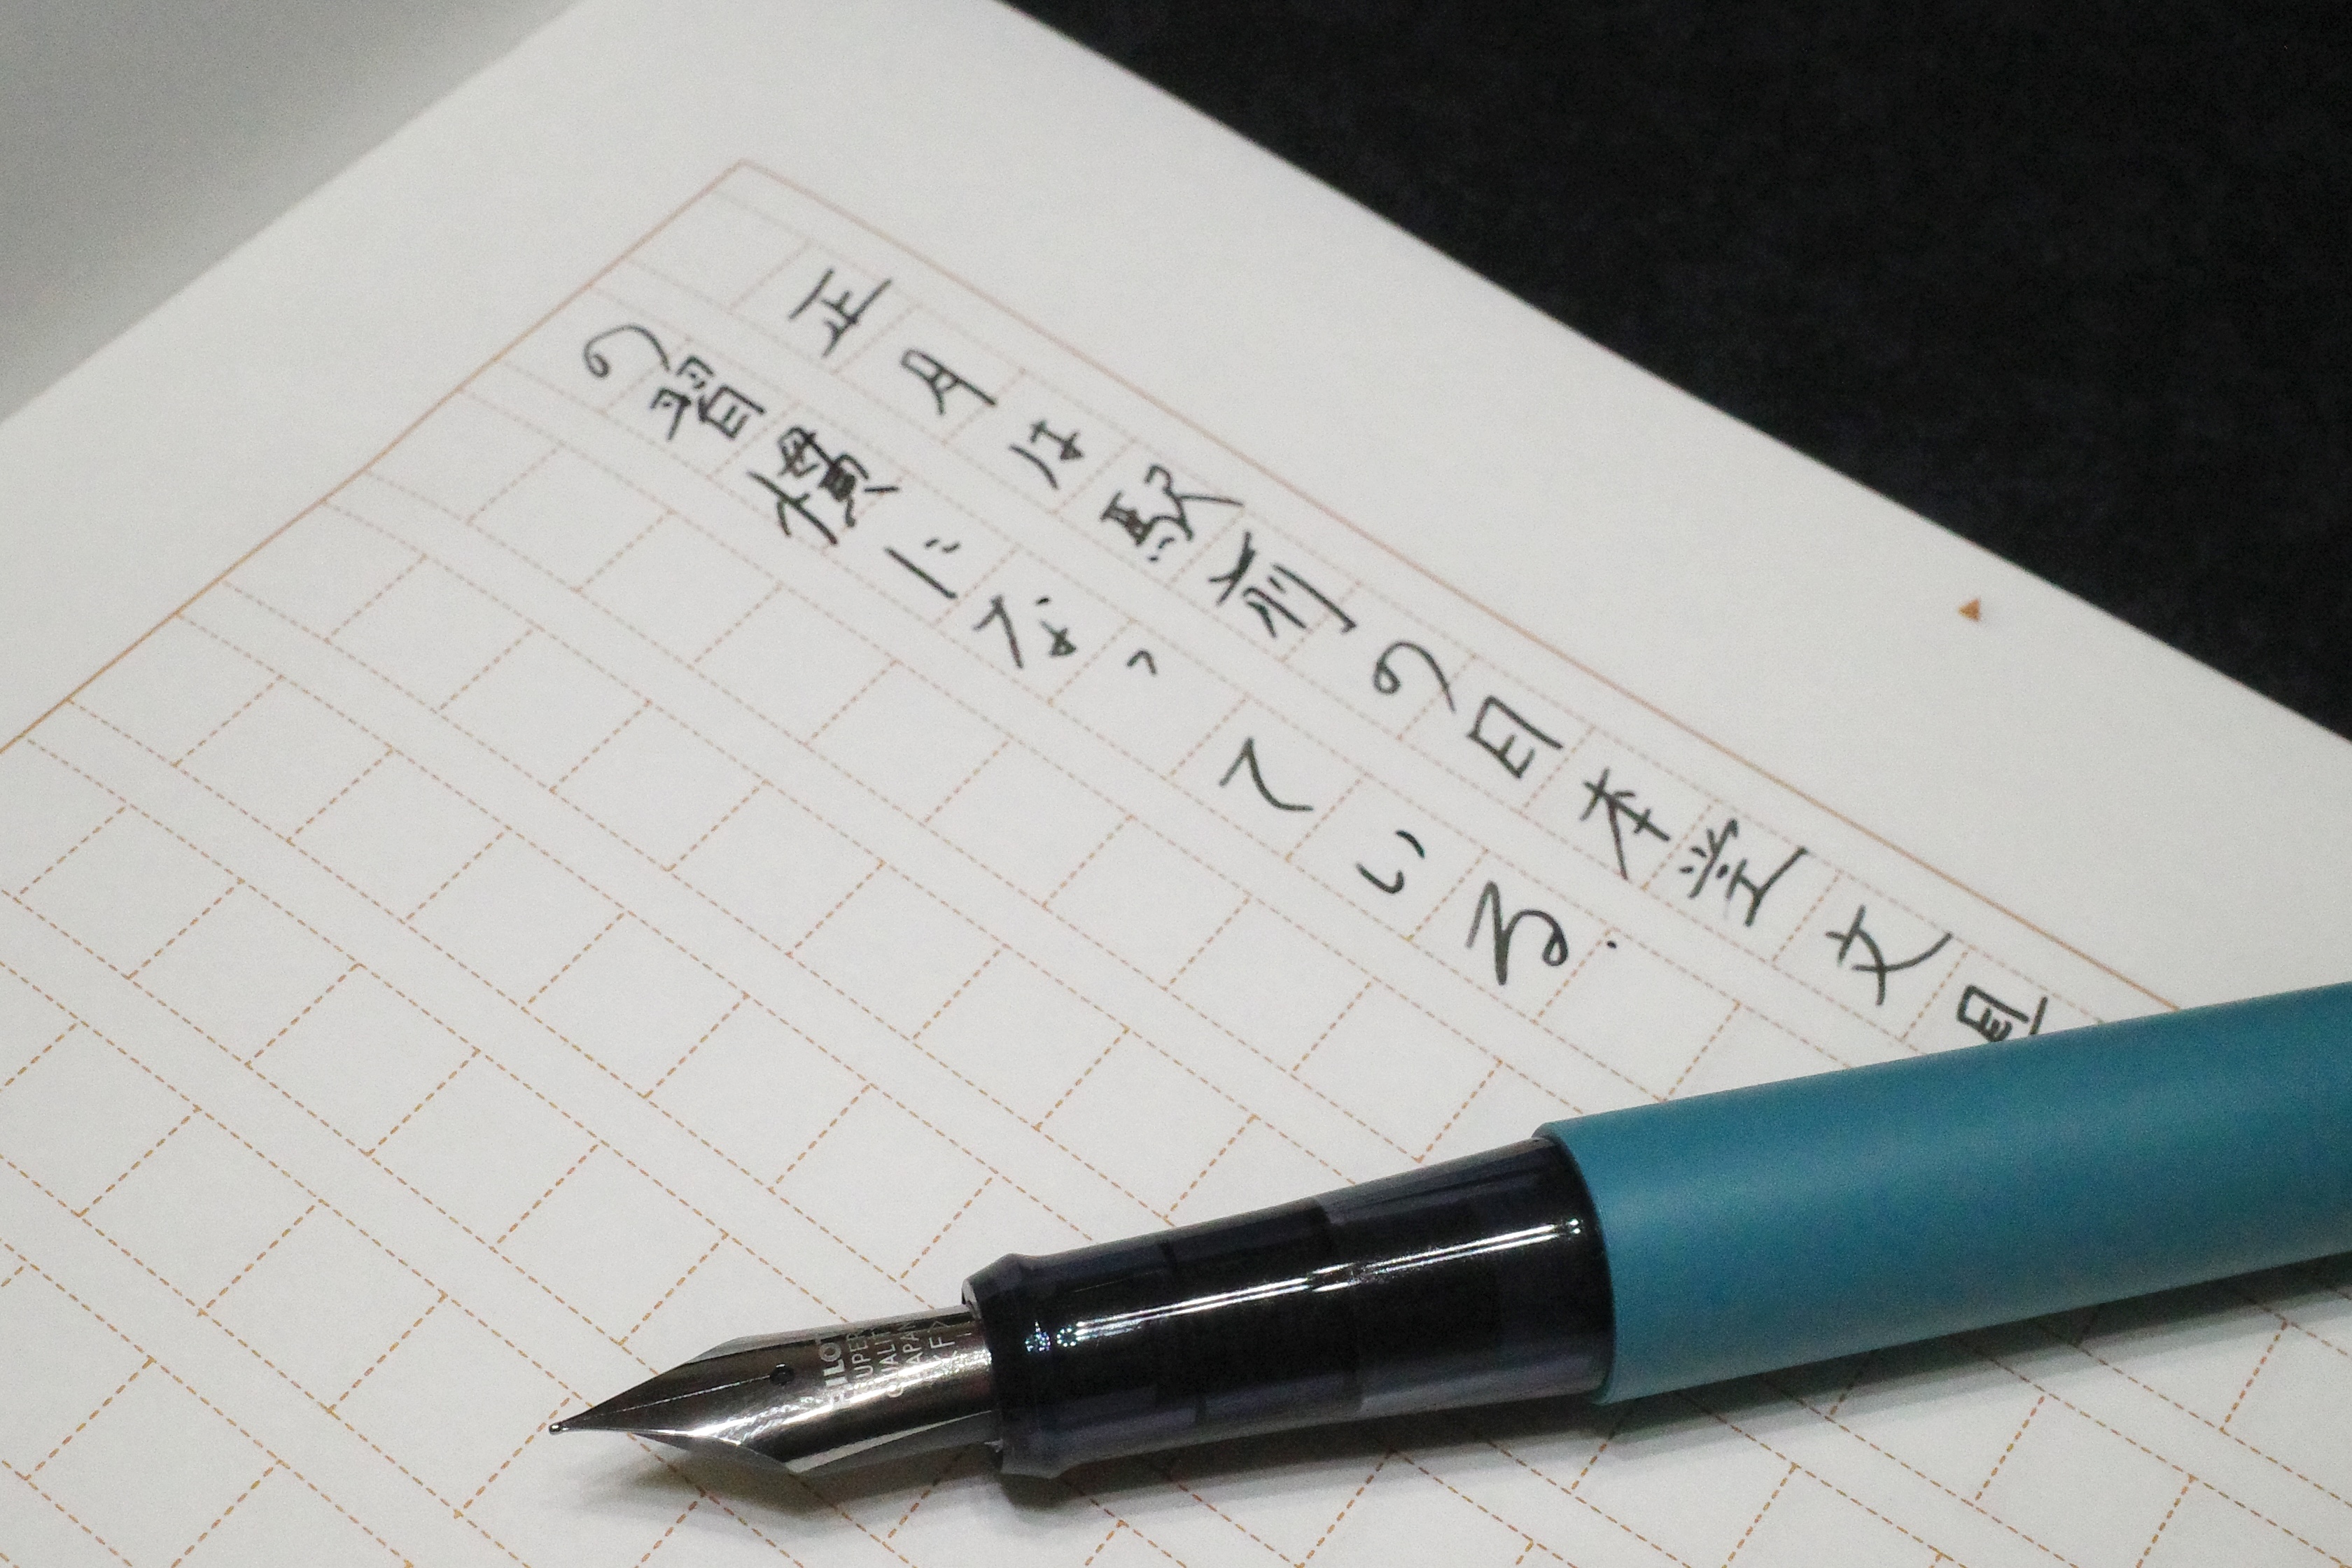 正月は駅前の日本堂文具
の習慣になっている。
PILOT
SUPER
QUALITY
JAPAN
<F>